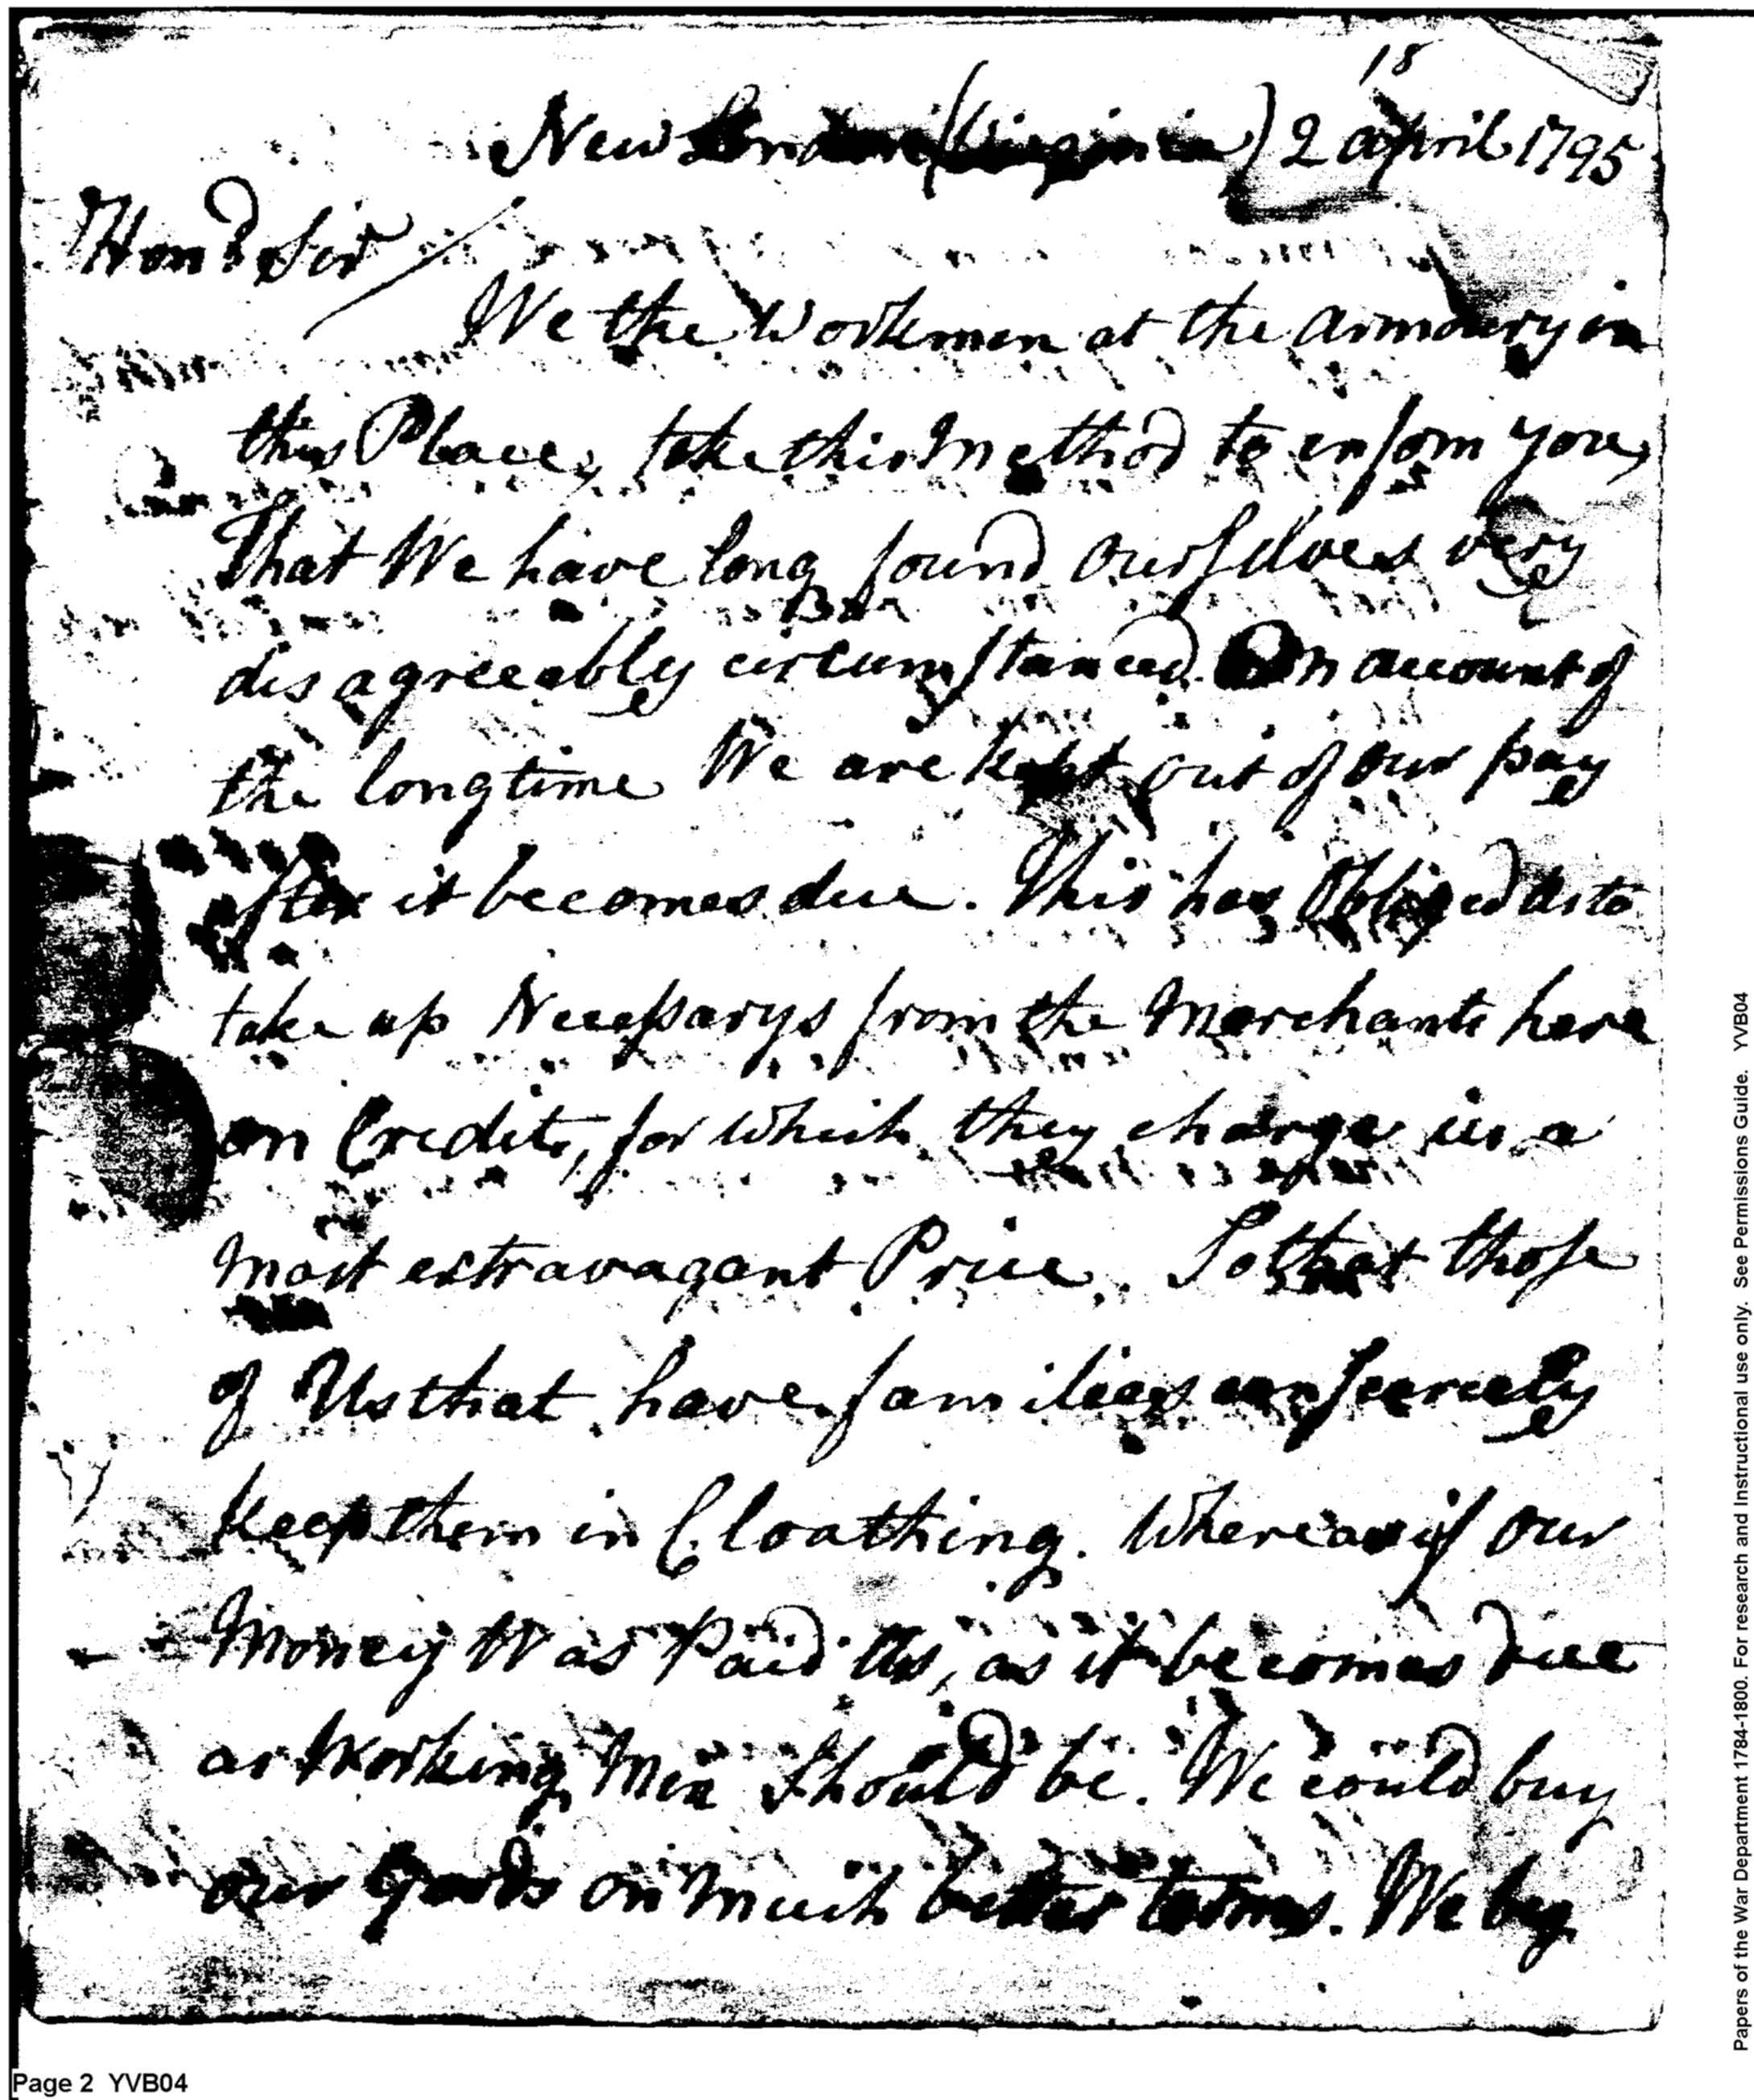 18
New London (Virginia) 2 april 1795
Hond Sir
We the Workmen at the armoury in
this Place, take this Method to enform you,
That We have long found ourselves very
disagreeably circumstanced On account of
the longtime We are kept out of our pay
after it becomes due. This has Obliged us to
take up Necessarys from the Merchants here
on Credit, for which they charge us a
most extravagant Price. So that those
of Us that have families can scarcely
keep them in Cloathing. Whereas if our
Money Was Paid Us, as it becomes due
as Working Men Should be. We could buy
our goods on much better terms. We beg
Page 2 YVB04
Papers of the War Department 1784-1800. For research and Instructional use only. See Permissions Guide. YVB04